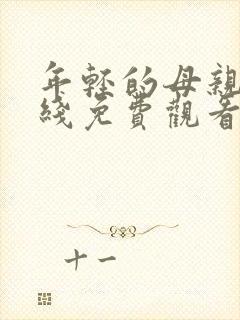 年轻的母親
綫免費觀看
十一